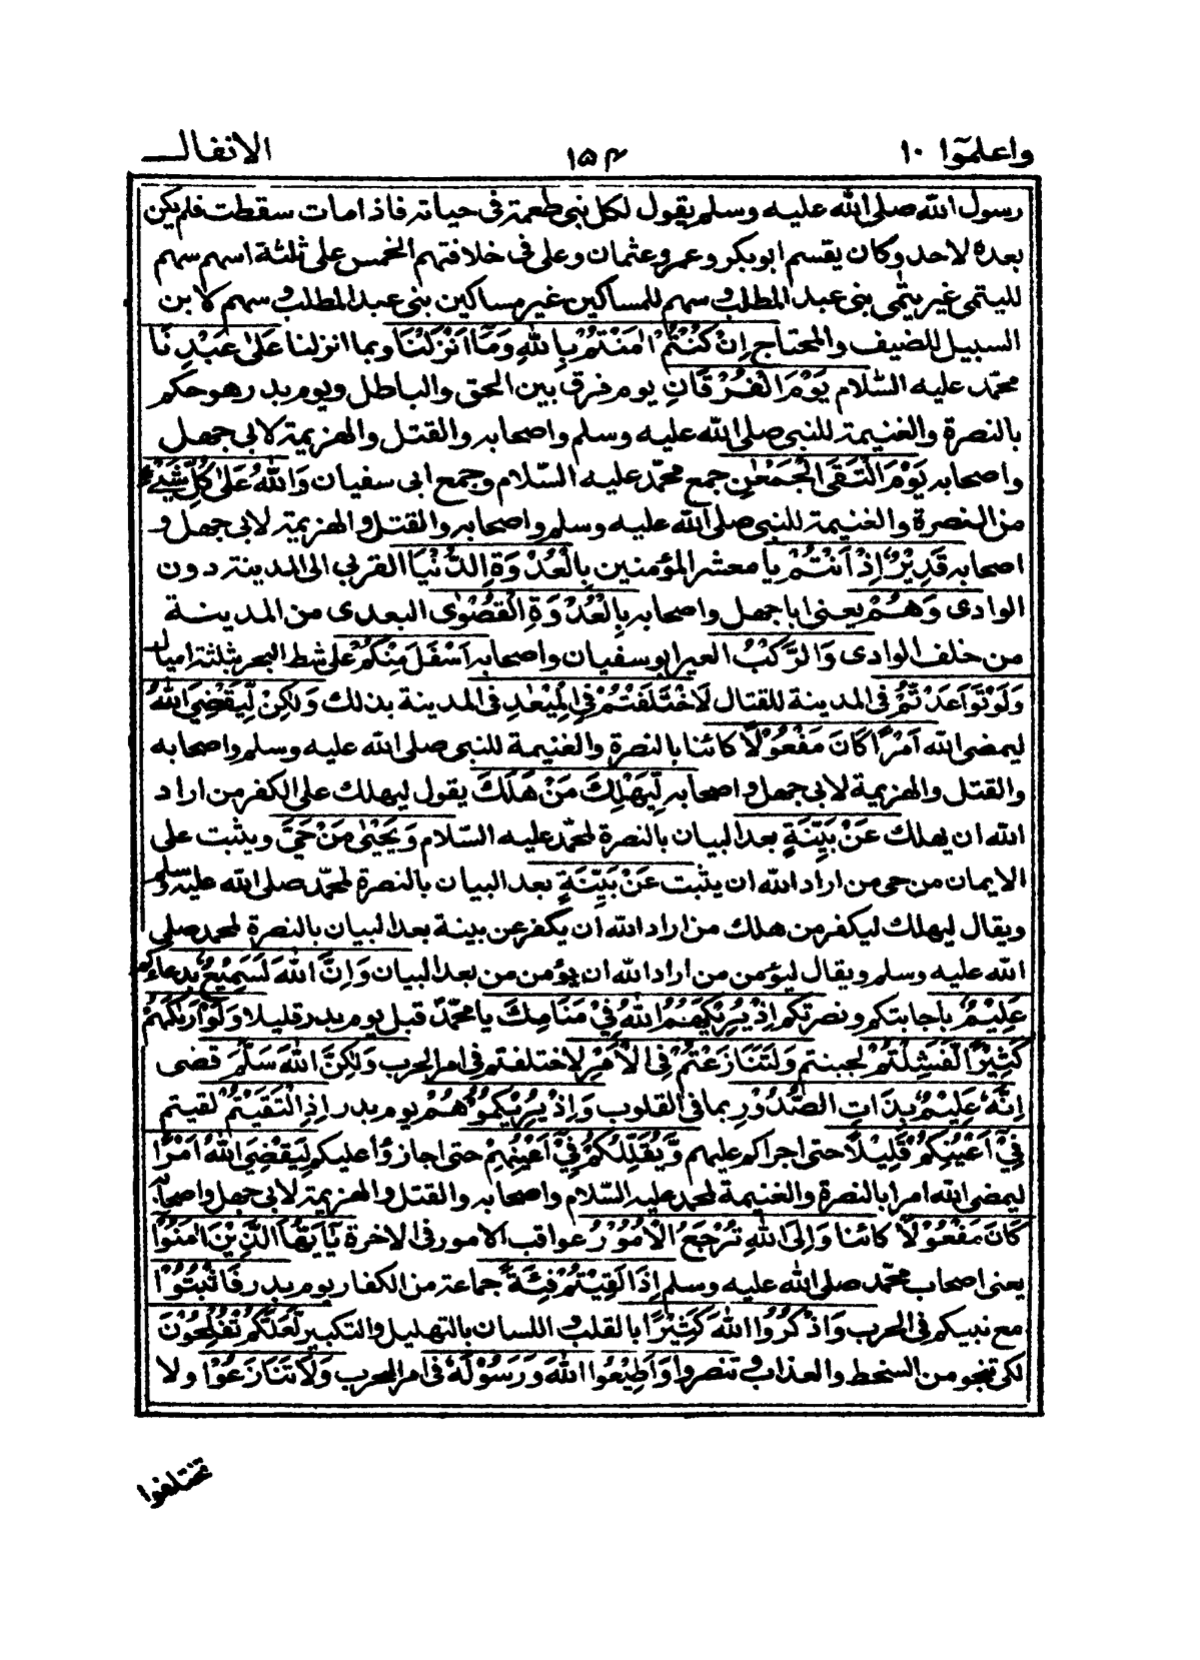 واعلموا ١٠
١٥٤
الانفال
رسول الله صلى الله عليه وسلم يقول لكل نبى طعمة فى حياته فاذا مات سقطت فلم يكن
بعده لاحد وكان يقسم ابوبكر وعمر وعثمان وعلى فى خلافتهم الخمس على ثلثة اسهم سهم
لليتمى غير يتمى بنى عبد المطلب و سهم للمساكين غير مساكين بنى عبد المطلب و سهم لابن
السبيل للضيف والمحتاج اِنْ كُنْتُمْ اٰمَنْتُمْ بِاللّٰهِ وَمَآ اَنْزَلْنَا وبما انزلنا عَلٰى عَبْدِنَا
محمّد عليه السّلام يَوْمَ الْفُرْقَانِ يوم فرق بين الحق والباطل ويوم بدر هو حكم
بالنصرة والغنيمة للنبى صلى الله عليه وسلم واصحابه والقتل والهزيمة لابى جهل
واصحابه يَوْمَ الْتَقَى الْجَمْعٰنِ جمع محمّد عليه السّلام وجمع ابى سفيان وَاللّٰهُ عَلٰى كُلِّ شَيْءٍ
من النصرة والغنيمة للنبى صلى الله عليه وسلم واصحابه والقتل والهزيمة لابى جهل و
اصحابه قَدِيْرٌ اِذْ اَنْتُمْ يا معشر المؤمنين بِالْعُدْوَةِ الدُّنْيَا القربى الى المدينة دون
الوادى وَهُمْ يعنى ابا جهل واصحابه بِالْعُدْوَةِ الْقُصْوٰى البعدى من المدينة
من خلف الوادى وَالرَّكْبُ العير ابو سفيان واصحابه اَسْفَلَ مِنْكُمْ على شط البحر بثلثة اميال
وَلَوْ تَوَاعَدْتُّمْ فى المدينة للقتال لَاخْتَلَفْتُمْ فِى الْمِيْعٰدِ فى المدينة بذلك وَلٰكِنْ لِّيَقْضِيَ اللّٰهُ
ليمضى الله اَمْرًا كَانَ مَفْعُوْلًا كائنا بالنصرة والغنيمة للنبى صلى الله عليه وسلم واصحابه
والقتل والهزيمة لابى جهل و اصحابه لِّيَهْلِكَ مَنْ هَلَكَ يقول ليهلك على الكفر من اراد
الله ان يهلك عَنْۢ بَيِّنَةٍ بعد البيان بالنصرة لمحمّد عليه السّلام وَيَحْيٰى مَنْ حَيَّ ويثبت على
الايمان من حى من اراد الله ان يثبت عَنْۢ بَيِّنَةٍ بعد البيان بالنصرة لمحمّد صلى الله عليه وسلم
ويقال ليهلك ليكفر من هلك من اراد الله ان يكفر عن بينة بعد البيان بالنصرة لمحمد صلى
الله عليه وسلم ويقال ليؤمن من اراد الله ان يؤمن من بعد البيان وَاِنَّ اللّٰهَ لَسَمِيْعٌ بدعائكم
عَلِيْمٌ باجابتكم ونصرتكم اِذْ يُرِيْكَهُمُ اللّٰهُ فِيْ مَنَامِكَ يا محمّد قبل يوم بدر قليلا وَلَوْ اَرٰىكَهُمْ
كَثِيْرًا لَّفَشِلْتُمْ لجبنتم وَلَتَنَازَعْتُمْ فِى الْاَمْرِ لاختلفتم فى امر الحرب وَلٰكِنَّ اللّٰهَ سَلَّمَ قضى
اِنَّهٗ عَلِيْمٌۢ بِذَاتِ الصُّدُوْرِ بما فى القلوب وَاِذْ يُرِيْكُمُوْهُمْ يوم بدر اِذِ الْتَقَيْتُمْ لقيتم
فِيْٓ اَعْيُنِكُمْ قَلِيْلًا حتى اجراكم عليهم وَّيُقَلِّلُكُمْ فِيْٓ اَعْيُنِهِمْ حتى اجازؤا عليكم لِيَقْضِيَ اللّٰهُ اَمْرًا
ليمضى الله امرا بالنصرة والغنيمة لمحمد عليه السّلام واصحابه والقتل والهزيمة لابى جهل واصحابه
كَانَ مَفْعُوْلًا كائنا وَاِلَى اللّٰهِ تُرْجَعُ الْاُمُوْرُ عواقب الامور فى الاخرة يٰٓاَيُّهَا الَّذِيْنَ اٰمَنُوْٓا
يعنى اصحاب محمّد صلى الله عليه وسلم اِذَا لَقِيْتُمْ فِئَةً جماعة من الكفار يوم بدر فَاثْبُتُوْا
مع نبيكم فى الحرب وَاذْكُرُوا اللّٰهَ كَثِيْرًا بالقلب و اللسان بالتهليل والتكبير لَّعَلَّكُمْ تُفْلِحُوْنَ
لكى تنجو من السخط والعذاب و تنصروا وَاَطِيْعُوا اللّٰهَ وَرَسُوْلَهٗ فى امر الحرب وَلَا تَنَازَعُوْا ولا
تختلفوا